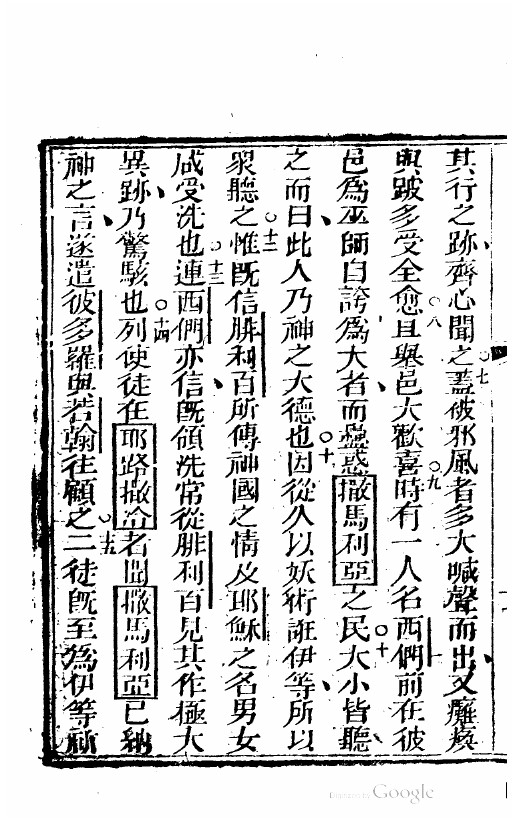 其行之跡齊心聞之○七蓋被邪風者多大喊聲而出又癱瘓
與跛多受全愈○八且舉邑大歡喜○九時有一人名西們前在彼
邑為巫師自誇為大者而蠱惑撒馬利亞之民○十大小皆聽
之而曰此人乃神之大德也○十因從久以妖術誑伊等所以
眾聽之○十二惟既信腓利百所傳神國之情及耶穌之名男女
咸受洗也○十三連西們亦信既領洗常從腓利百見其作極大
異跡乃驚駭也○十四列使徒在耶路撒冷者聞撒馬利亞已納
神之言遂遣彼多羅與若翰往顧之○十五二徒既至為伊等祈
Digitized by Google